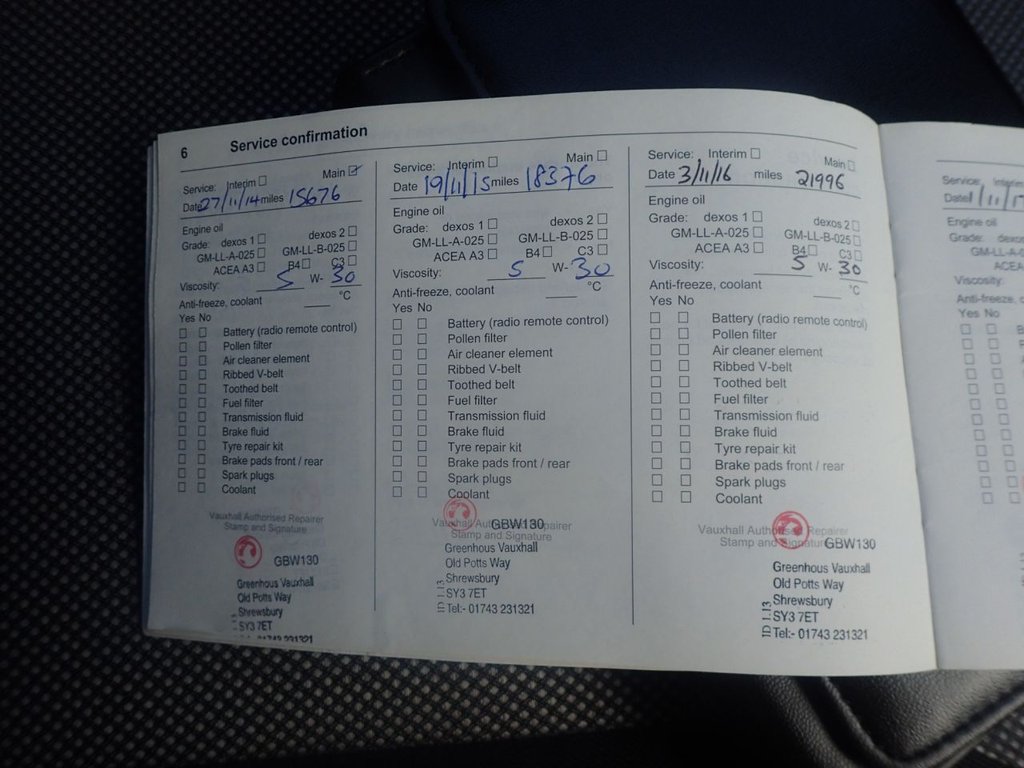 6 Service confirmation
Service: Interim ☐ Main ☑
Date 27/11/14 miles 15676
Engine oil
Grade: dexos 1 ☐ dexos 2 ☐
GM-LL-A-025 ☐ GM-LL-B-025 ☐
ACEA A3 ☐ B4 ☐ C3 ☐
Viscosity: 5 W- 30
Anti-freeze, coolant ___ °C
Yes No
☐ ☐ Battery (radio remote control)
☐ ☐ Pollen filter
☐ ☐ Air cleaner element
☐ ☐ Ribbed V-belt
☐ ☐ Toothed belt
☐ ☐ Fuel filter
☐ ☐ Transmission fluid
☐ ☐ Brake fluid
☐ ☐ Tyre repair kit
☐ ☐ Brake pads front / rear
☐ ☐ Spark plugs
☐ ☐ Coolant
Vauxhall Authorised Repairer
Stamp and Signature
GBW130
Greenhous Vauxhall
Old Potts Way
Shrewsbury
SY3 7ET
01743 231321
Service: Interim ☐ Main ☐
Date 19/11/15 miles 18376
Engine oil
Grade: dexos 1 ☐ dexos 2 ☐
GM-LL-A-025 ☐ GM-LL-B-025 ☐
ACEA A3 ☐ B4 ☐ C3 ☐
Viscosity: 5 W- 30
Anti-freeze, coolant ___ °C
Yes No
☐ ☐ Battery (radio remote control)
☐ ☐ Pollen filter
☐ ☐ Air cleaner element
☐ ☐ Ribbed V-belt
☐ ☐ Toothed belt
☐ ☐ Fuel filter
☐ ☐ Transmission fluid
☐ ☐ Brake fluid
☐ ☐ Tyre repair kit
☐ ☐ Brake pads front / rear
☐ ☐ Spark plugs
☐ ☐ Coolant
Vauxhall Authorised Repairer
GBW130
Stamp and Signature
Greenhous Vauxhall
Old Potts Way
Shrewsbury
SY3 7ET
Tel:- 01743 231321
ID 1.13
Service: Interim ☐ Main ☐
Date 3/11/16 miles 21996
Engine oil
Grade: dexos 1 ☐ dexos 2 ☐
GM-LL-A-025 ☐ GM-LL-B-025 ☐
ACEA A3 ☐ B4 ☐ C3 ☐
Viscosity: 5 W- 30
Anti-freeze, coolant ___ °C
Yes No
☐ ☐ Battery (radio remote control)
☐ ☐ Pollen filter
☐ ☐ Air cleaner element
☐ ☐ Ribbed V-belt
☐ ☐ Toothed belt
☐ ☐ Fuel filter
☐ ☐ Transmission fluid
☐ ☐ Brake fluid
☐ ☐ Tyre repair kit
☐ ☐ Brake pads front / rear
☐ ☐ Spark plugs
☐ ☐ Coolant
Vauxhall Authorised Repairer
Stamp and Signature
GBW130
Greenhous Vauxhall
Old Potts Way
Shrewsbury
SY3 7ET
Tel:- 01743 231321
ID 1.13
Service: Interim
Date
Engine oil
Grade:
GM-LL-A-0
ACEA
Viscosity:
Anti-freeze,
Yes No